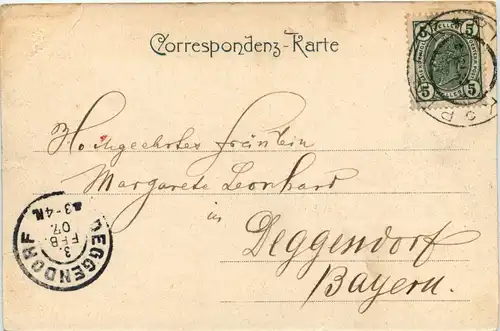 Correspondenz-Karte
5 HELLER 5
5 5
Hochgeehrtes Fräulein
Margarete Leonhard
in
Deggendorf
Bayern.
DEGGENDORF
3.
FEB.
07.
3-4N.